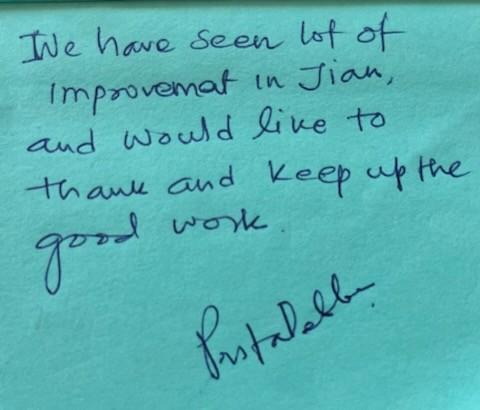 We have seen lot of
improvemat in Jian,
and would like to
thank and keep up the
good work.